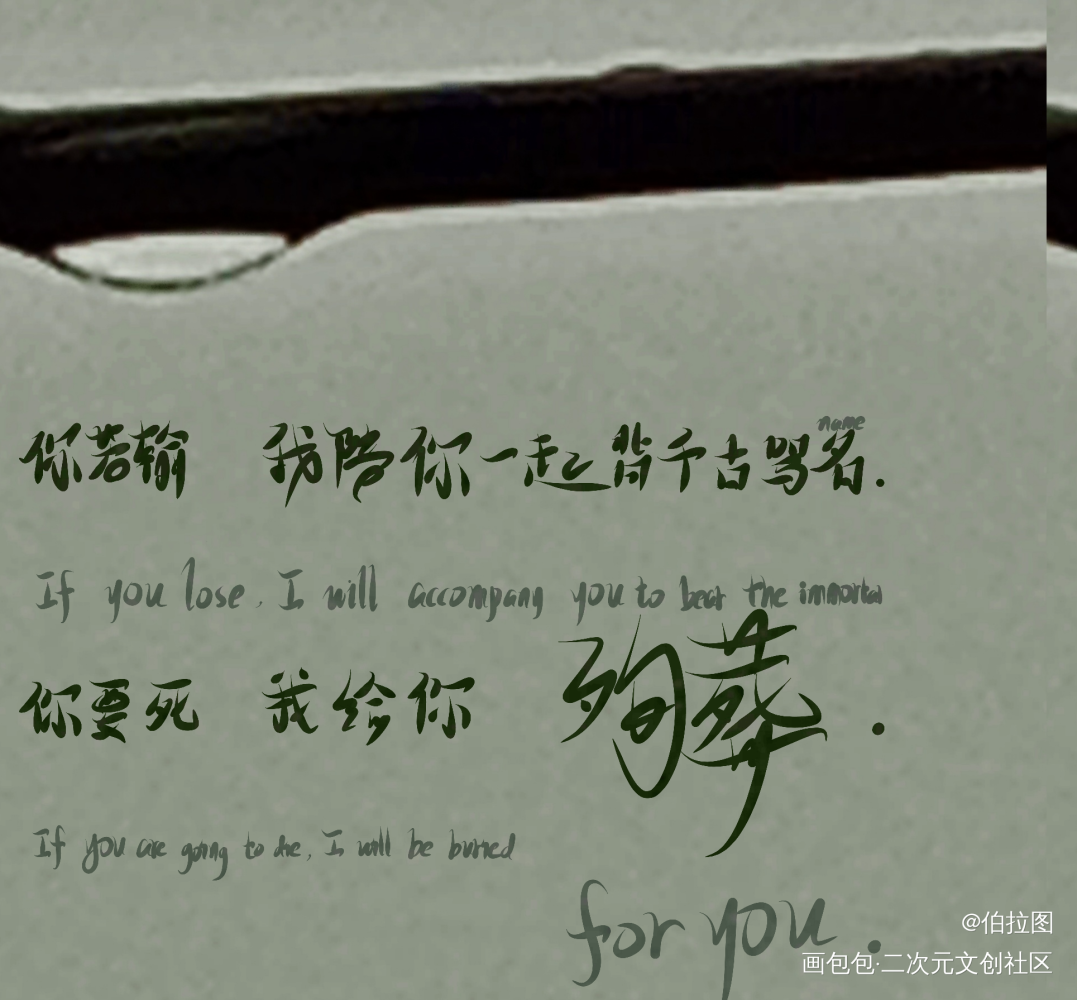 你若输 我陪你一起背千古骂名.
name
If you lose, I will accompany you to bear the immortal
你要死 我给你 殉葬.
If you are going to die, I will be buried
for you.
@伯拉图
画包包·二次元文创社区